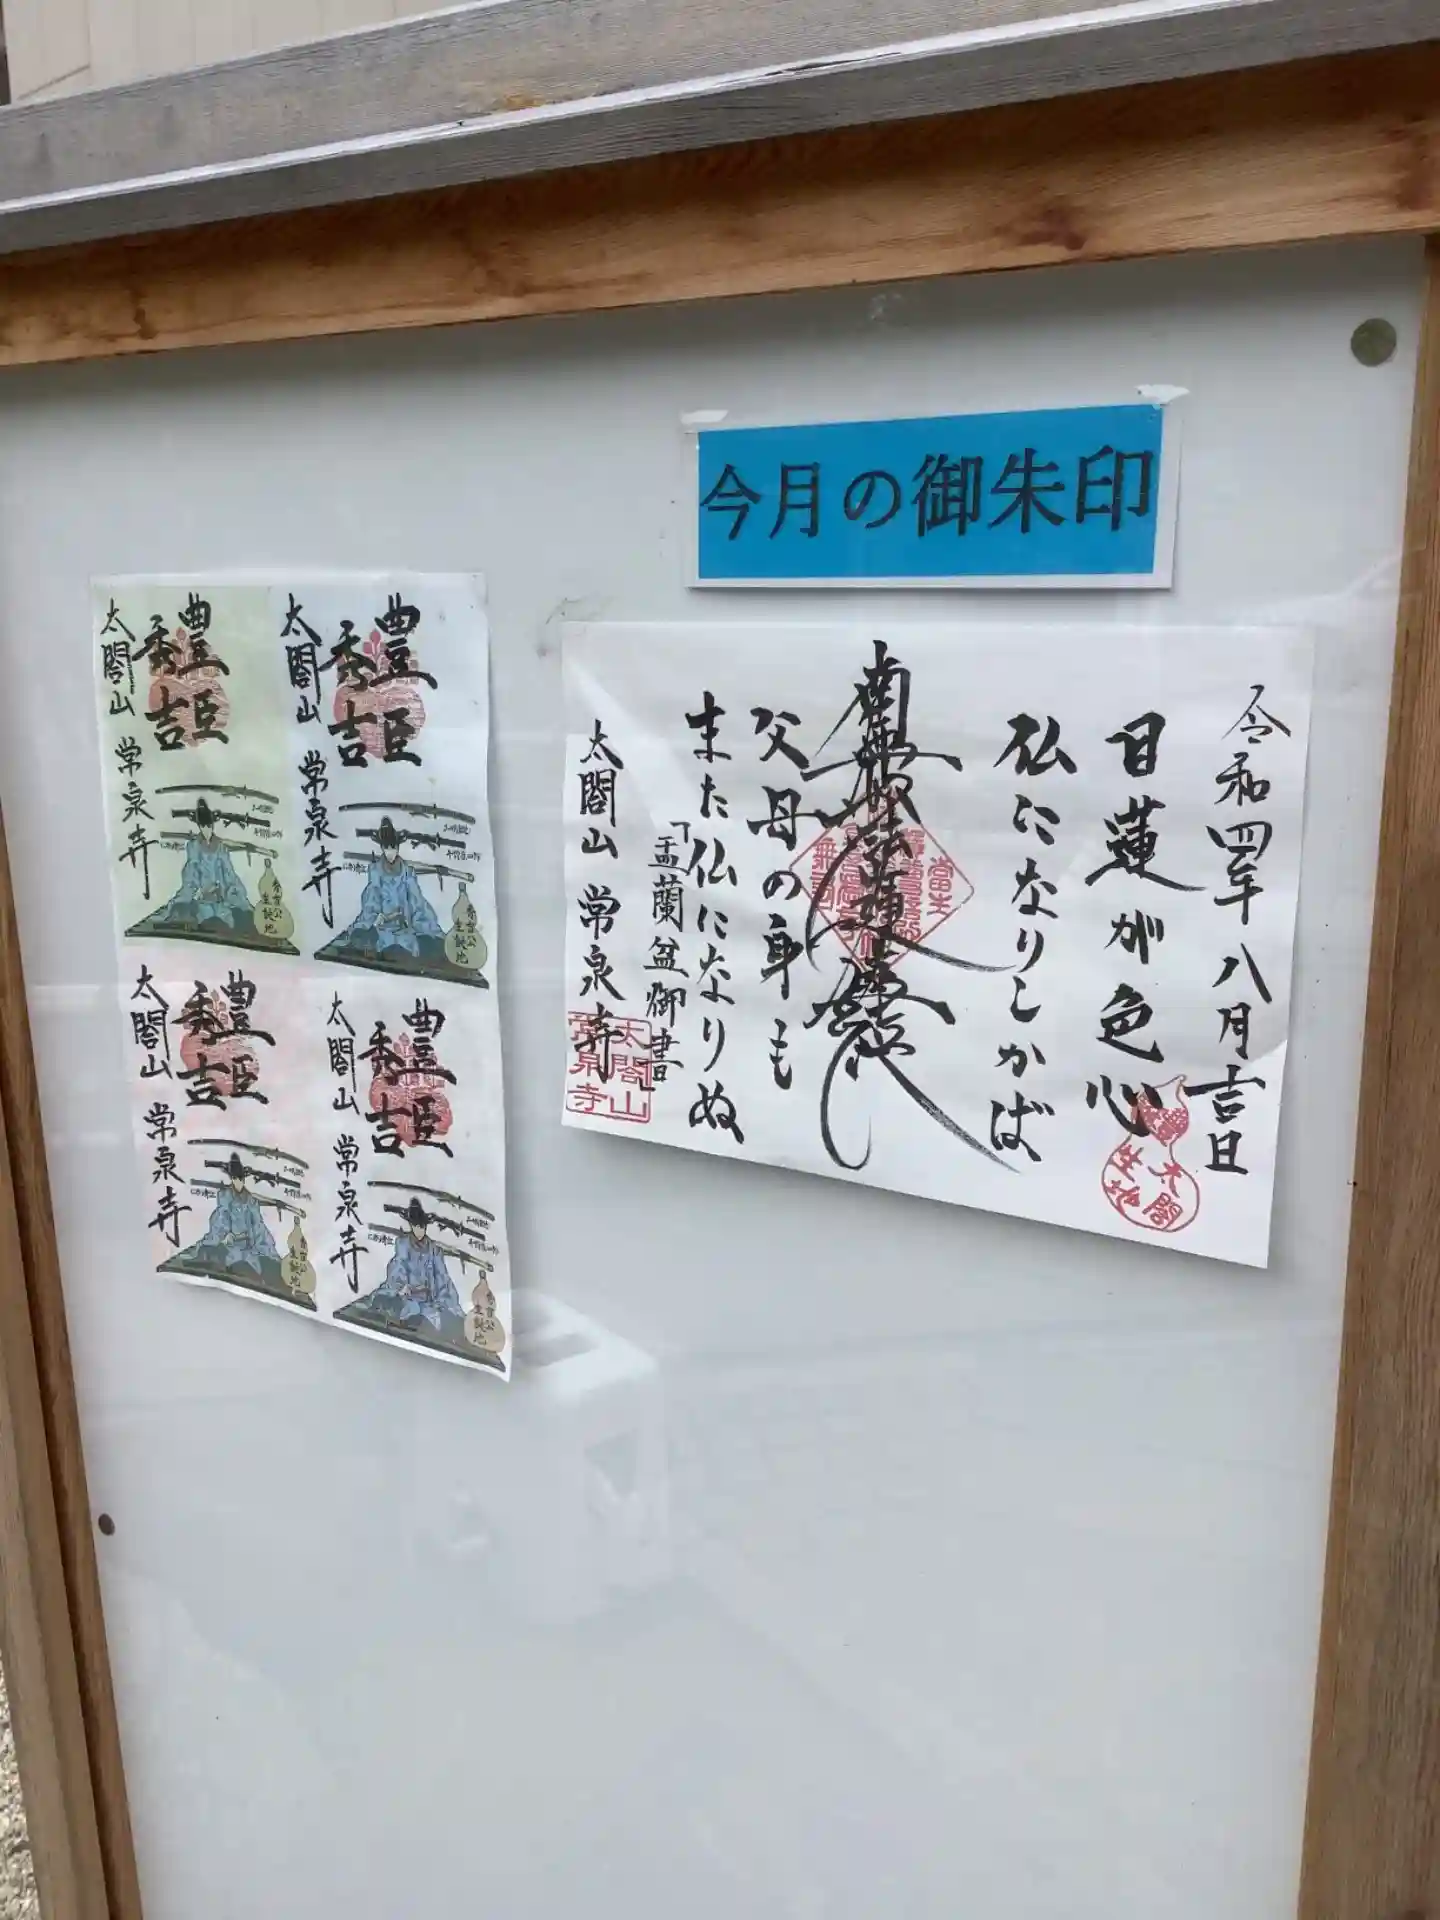 今月の御朱印
令和四年八月吉日
日蓮が色心
仏になりしかば
南無妙法蓮華経
父母の身も
また仏になりぬ
「盂蘭盆御書」
太閤山 常泉寺
太閤
生地
太閤山
常泉寺
豊臣
秀吉
太閤山 常泉寺
秀吉公
生誕地
豊臣
秀吉
太閤山 常泉寺
秀吉公
生誕地
豊臣
秀吉
太閤山 常泉寺
秀吉公
生誕地
豊臣
秀吉
太閤山 常泉寺
秀吉公
生誕地